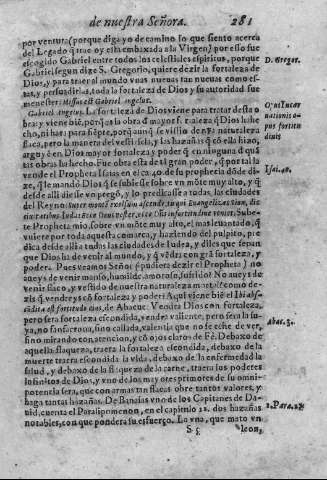 de nuestra Señora. 281
por ventura (porque diga yo de camino lo que siento acerca
del Legado q̃ truxo esta embaxada a la Virgen) por esso fue
escogido Gabriel entre todos los celestiales espiritus, porque
Gabriel segun dize S. Gregorio, quiere dezir la fortaleza de
D. Gregor.
Dios, y para traer al mundo vnas nueuas tan nueuas como es-
tas, y persuadirlas, toda la fortaleza de Dios y su autoridad fue
menester: Missus est Gabriel angelus.
Gabriel Angelus. La fortaleza de Dios viene para tratar desta o
bra: y viene biẽ, porq̃ es la obra d mayor fortaleza q̃ Dios ha he
cho, ni hara: para siẽpre, porq̃ aunq̃ se vistio de nr̃a naturaleza
flaca, pero la manera del vestirsela, y las hazañas q̃ cõ ella hizo,
arguyẽ en Dios mayor fortaleza y poder q̃ en ninguna d quã
tas obras ha hecho. Fue obra esta de tã gran poder, q̃ por tal la
vande el Propheta Isaias en el ca. 40. de su prophecia dõde di-
Isai. 40.
ze, q̃ le mandò Dios q̃ se subiesse sobre vn mõte muy alto, y q̃
desde alli diesse vn pregõ, y lo predicasse a todas las ciudades
del Reyno: super montẽ excelsum ascende tu qui Euangelizas Sion, dic
ciuitatibus Iudæ: Ecce Deus vester, ecce Deus in fortitudine veniet. Sube-
te Propheta mio, sobre vn mõte muy alto, el mas leuantado, q̃
vuiere por toda aquesta comarca, y haziendo del pulpito, pre
dica desde alli a todas las ciudades de Iudea, y diles que sepan
que Dios ha de venir al mundo, y q̃ vẽdra con grã fortaleza, y
poder. Pues veamos Señor (pudiera dezir el Propheta) no
aueys de venir manso, humilde, amoroso, sufrido? No aueys de
venir flaco, y vestido de nuestra naturaleza mortal? como de-
zis q̃ vendreys cõ fortaleza y poder? Aqui viene biẽ el Ibi abs-
condita est fortitudo eius, de Abacuc. Vendra Dios con fortaleza,
Abac. 3.
pero sera fortaleza escondida, vendra valiente, pero sera la su-
ya, no fanfarrona, sino callada, valentia que no se eche de ver,
sino mirando con atencion, y cõ ojos claros de Fè. Debaxo de
aquella flaqueza, traera la fortaleza escondida, debaxo de la
muerte traera escondida la vida, debaxo de la enfermedad la
salud, y debaxo de la flaqueza de la carne, traera los poderes
infinitos de Dios, y vno de los mayores primores de su omni-
potencia sera, que con armas tan flacas obre tantos valores, y
haga tantas hazañas. De Banaias vno de los Capitanes de Da-
uid, cuenta el Paralipomenon, en el capitulo 11. dos hazañas
notables, con que pondera su esfuerço. La vna, que mato vn
S 5 leon,